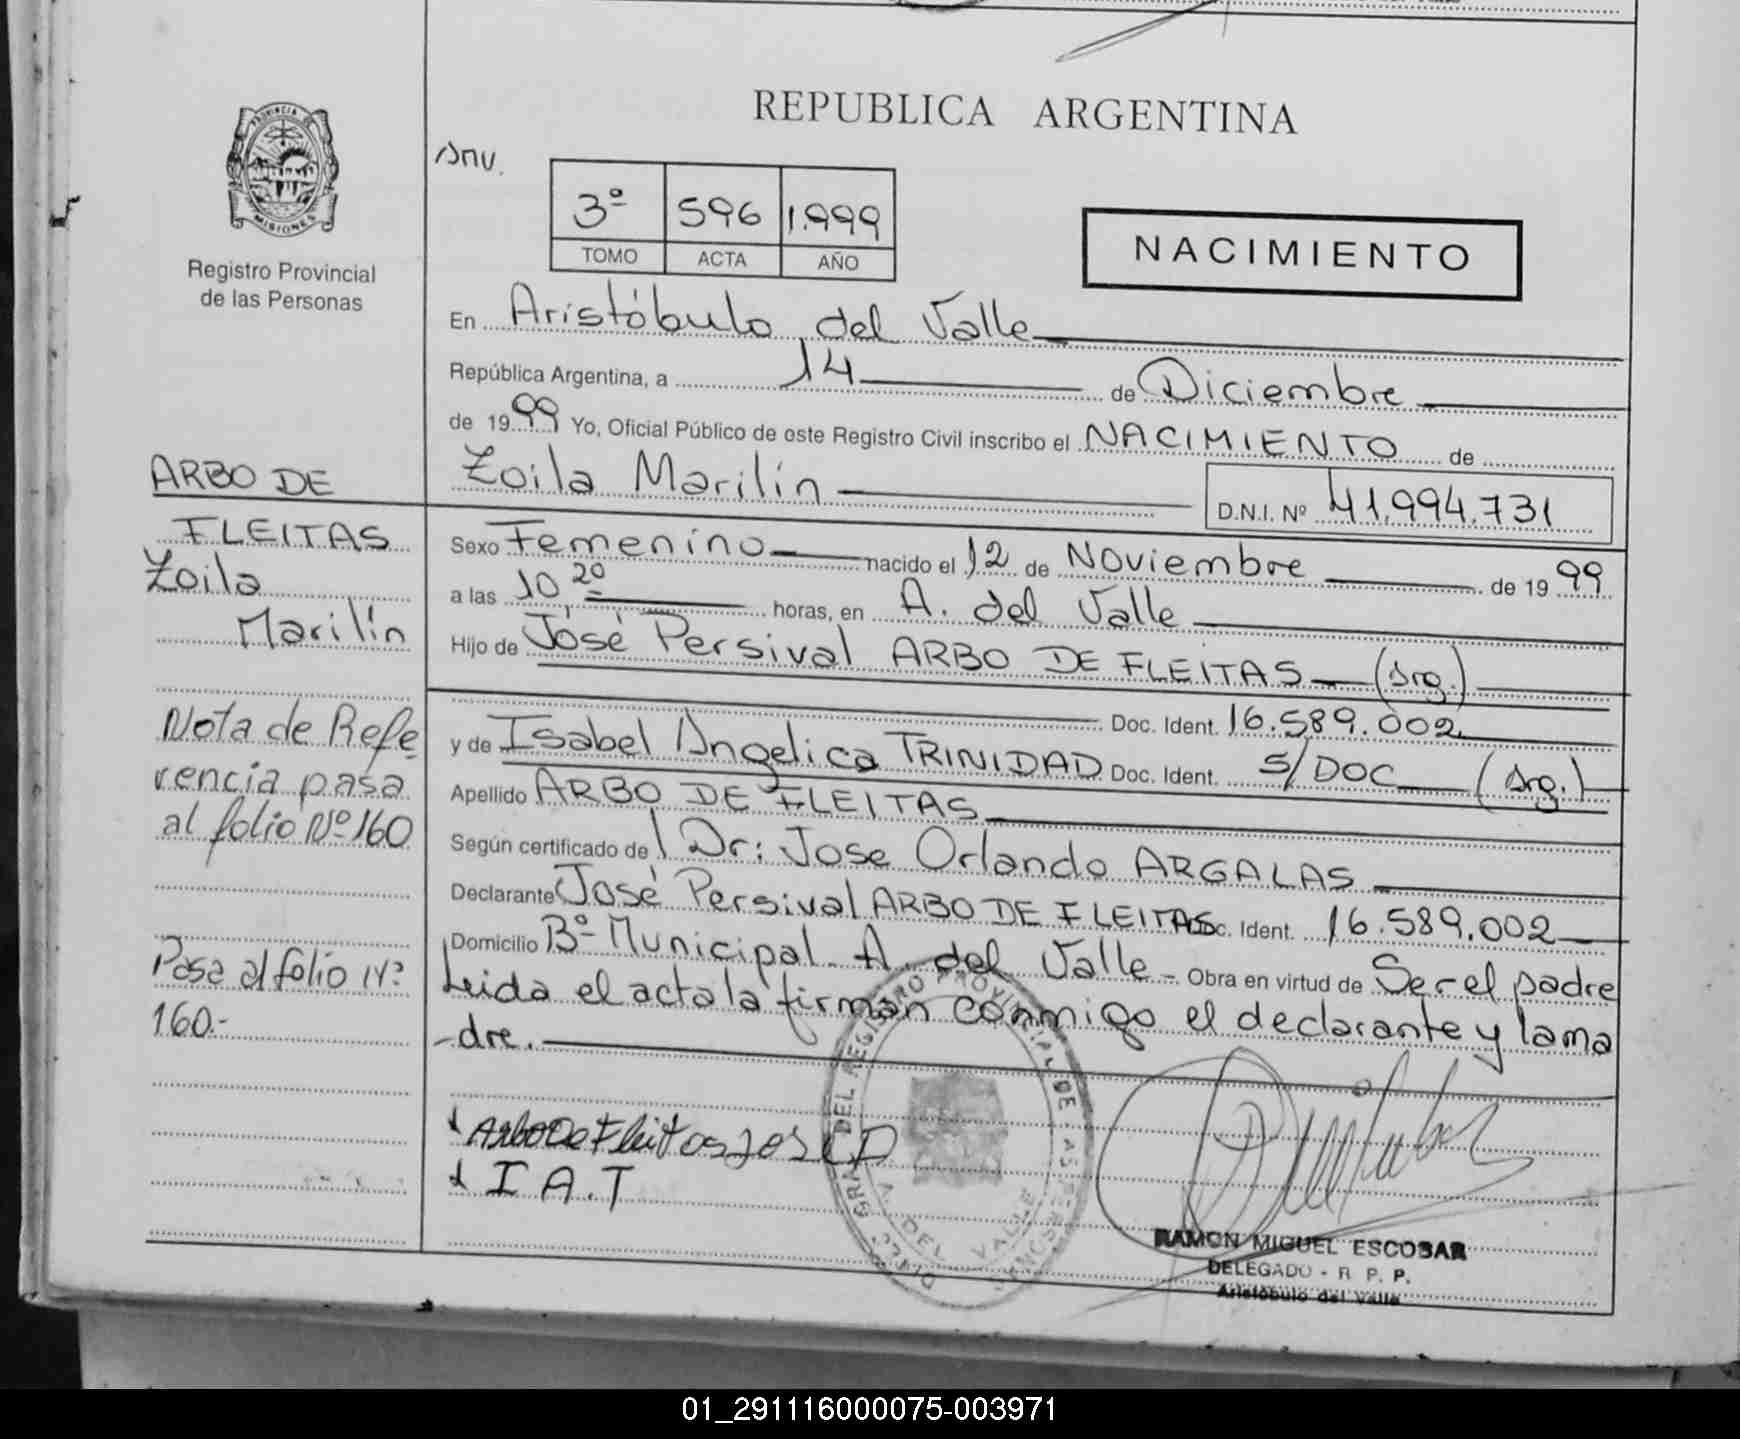 REPUBLICA ARGENTINA
PROVINCIA DE
MISIONES
Registro Provincial
de las Personas
3º 596 1.999
TOMO ACTA AÑO
NACIMIENTO
En Aristóbulo del Valle
República Argentina, a 14 de Diciembre
de 1999 Yo, Oficial Público de este Registro Civil inscribo el NACIMIENTO de
Zoila Marilín D.N.I. Nº 41.994.731
Sexo Femenino nacido el 12 de Noviembre de 1999
a las 10,20 horas, en A. del Valle
Hijo de José Persival ARBO DE FLEITAS (Arg.)
Doc. Ident. 16.589.002
y de Isabel Angelica TRINIDAD Doc. Ident. S/DOC (Arg.)
Apellido ARBO DE FLEITAS
Según certificado de Dr: Jose Orlando ARGALAS
Declarante José Persival ARBO DE FLEITAS Doc. Ident. 16.589.002
Domicilio Bº Municipal A. del Valle Obra en virtud de Ser el padre
Leida el acta la firman conmigo el declarante y la ma
-dre.
ARBO DE
FLEITAS
Zoila
Marilín
Nota de Refe
rencia pasa
al folio Nº 160
Pasa al folio Nº
160.-
Arbo De Fleitas José P
I A. T
DEL REGISTRO PROVINCIAL DE LAS PERSONAS
A. DEL VALLE
RAMON MIGUEL ESCOBAR
DELEGADO - R. P. P.
Aristóbulo del Valle
01_291116000075-003971